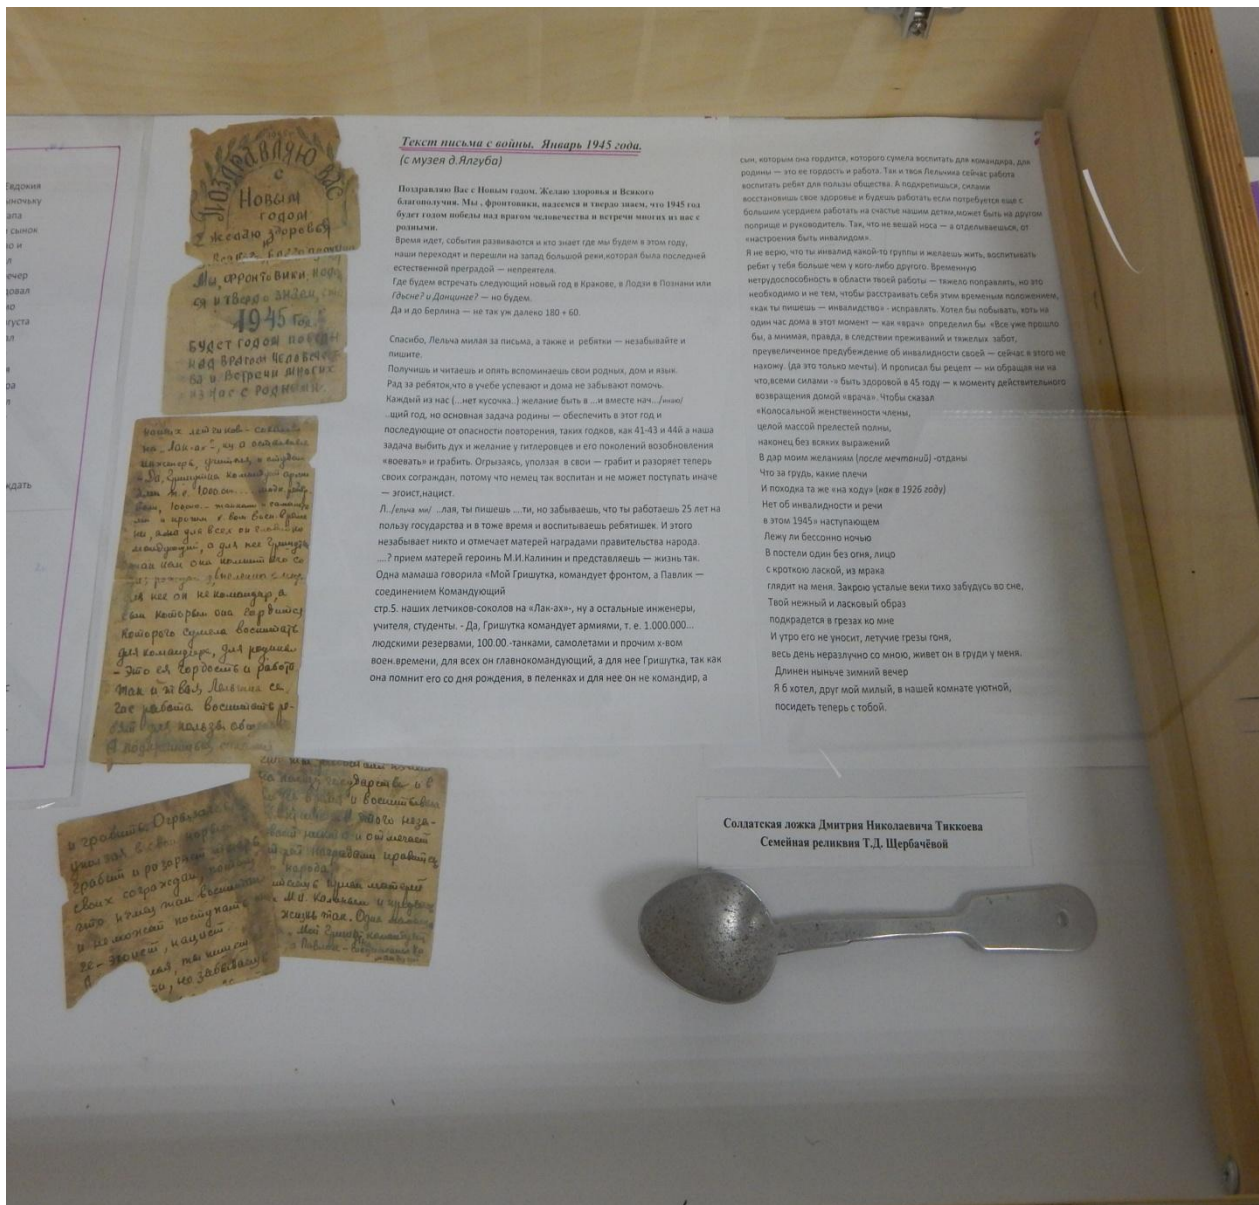 Евдокия
ночьку
апа
сынок
о и
ечер
довал
но
густа
ждать
Поздравляю Вас
с
Новым
годом
Желаю здоровья
Мы, фронтовики, наде
ся и твердо знаем, что
1945 год
будет годом победы
над врагом человечес
ва и встречи многих
из нас с родными.
наших летчиков-соколов
на „Лак-ах", ну а остальные
инженеры, учителя, и студен
- Да, Гришутка командует арми
ями т.е. 1000.000
для нее он не командир, а
сын которым она гордится
которого сумела воспитать
для командира, для родины
- это её гордость и работа
так и твоя Лельчина се
час работа воспитать ре-
бят для пользы общес
А подкрепишься, силами
и грабить. Огрызаясь
уползая в свои норы
грабит и разоряет теперь
своих сограждан, потому
что немец так воспитан
и не может поступать
че - эгоист, нацист
лая, ты пишешь
ти, но забываешь
на пользу государства и в
тоже время и воспитываешь
этого неза-
бывает никто и отмечает
матерей наградами правитель
народа.
прием матерей
М.И. Калинин и представ
жизнь так. Одна мамаша
„Мой Гришутка командует
а Павлик - соединением Ко
мандую
Текст письма с войны. Январь 1945 года.
(с музея д.Ялгуба)
Поздравляю Вас с Новым годом. Желаю здоровья и Всякого
благополучия. Мы , фронтовики, надеемся и твердо знаем, что 1945 год
будет годом победы над врагом человечества и встречи многих из вас с
родными.
Время идет, события развиваются и кто знает где мы будем в этом году,
наши переходят и перешли на запад большой реки,которая была последней
естественной преградой — непреятеля.
Где будем встречать следующий новый год в Кракове, в Лодзи в Познани или
Гдысне? и Данцинге? — но будем.
Да и до Берлина — не так уж далеко 180 + 60.
Спасибо, Лельча милая за письма, а также и ребятки — незабывайте и
пишите.
Получишь и читаешь и опять вспоминаешь свои родных, дом и язык.
Рад за ребяток,что в учебе успевают и дома не забывают помочь.
Каждый из нас (...нет кусочка..) желание быть в ...и вместе нач.../инаю/
..щий год, но основная задача родины — обеспечить в этот год и
последующие от опасности повторения, таких годков, как 41-43 и 44й а наша
задача выбить дух и желание у гитлеровцев и его поколений возобновления
«воевать» и грабить. Огрызаясь, уползая в свои — грабит и разоряет теперь
своих сограждан, потому что немец так воспитан и не может поступать иначе
— эгоист,нацист.
Л../ельча ми/ ..лая, ты пишешь ....ти, но забываешь, что ты работаешь 25 лет на
пользу государства и в тоже время и воспитываешь ребятишек. И этого
незабывает никто и отмечает матерей наградами правительства народа.
....? прием матерей героинь М.И.Калинин и представляешь — жизнь так.
Одна мамаша говорила «Мой Гришутка, командует фронтом, а Павлик —
соединением Командующий
стр.5. наших летчиков-соколов на «Лак-ах»-, ну а остальные инженеры,
учителя, студенты. - Да, Гришутка командует армиями, т. е. 1.000.000...
людскими резервами, 100.00 -танками, самолетами и прочим х-вом
воен.времени, для всех он главнокомандующий, а для нее Гришутка, так как
она помнит его со дня рождения, в пеленках и для нее он не командир, а
сын, которым она гордится, которого сумела воспитать для командира, для
родины — это ее гордость и работа. Так и твоя Лельчика сейчас работа
воспитать ребят для пользы общества. А подкрепишься, силами
восстановишь свое здоровье и будешь работать если потребуется еще с
большим усердием работать на счастье нашим детям,может быть на другом
поприще и руководитель. Так, что не вешай носа — а отделываешься, от
«настроения быть инвалидом».
Я не верю, что ты инвалид какой-то группы и желаешь жить, воспитывать
ребят у тебя больше чем у кого-либо другого. Временную
нетрудоспособность в области твоей работы — тяжело поправлять, но это
необходимо и не тем, чтобы расстраивать себя этим временым положением,
«как ты пишешь — инвалидство» - исправлять. Хотел бы побывать, хоть на
один час дома в этот момент — как «врач» определил бы «Все уже прошло
бы, а мнимая, правда, в следствии преживаний и тяжелых забот,
преувеличенное предубеждение об инвалидности своей — сейчас я этого не
нахожу. (да это только мечты). И прописал бы рецепт — ни обращая ни на
что,всеми силами -» быть здоровой в 45 году — к моменту действительного
возвращения домой «врача». Чтобы сказал
«Колосальной женственности члены,
целой массой прелестей полны,
наконец без всяких выражений
В дар моим желаниям (после мечтаний) -отданы
Что за грудь, какие плечи
И походка та же «на ходу» (как в 1926 году)
Нет об инвалидности и речи
в этом 1945» наступающем
Лежу ли бессонно ночью
В постели один без огня, лицо
с кроткою лаской, из мрака
глядит на меня. Закрою усталые веки тихо забудусь во сне,
Твой нежный и ласковый образ
подкрадется в грезах ко мне
И утро его не уносит, летучие грезы гоня,
весь день неразлучно со мною, живет он в груди у меня.
Длинен ныньче зимний вечер
Я б хотел, друг мой милый, в нашей комнате уютной,
посидеть теперь с тобой.
Солдатская ложка Дмитрия Николаевича Тиккоева
Семейная реликвия Т.Д. Щербачёвой